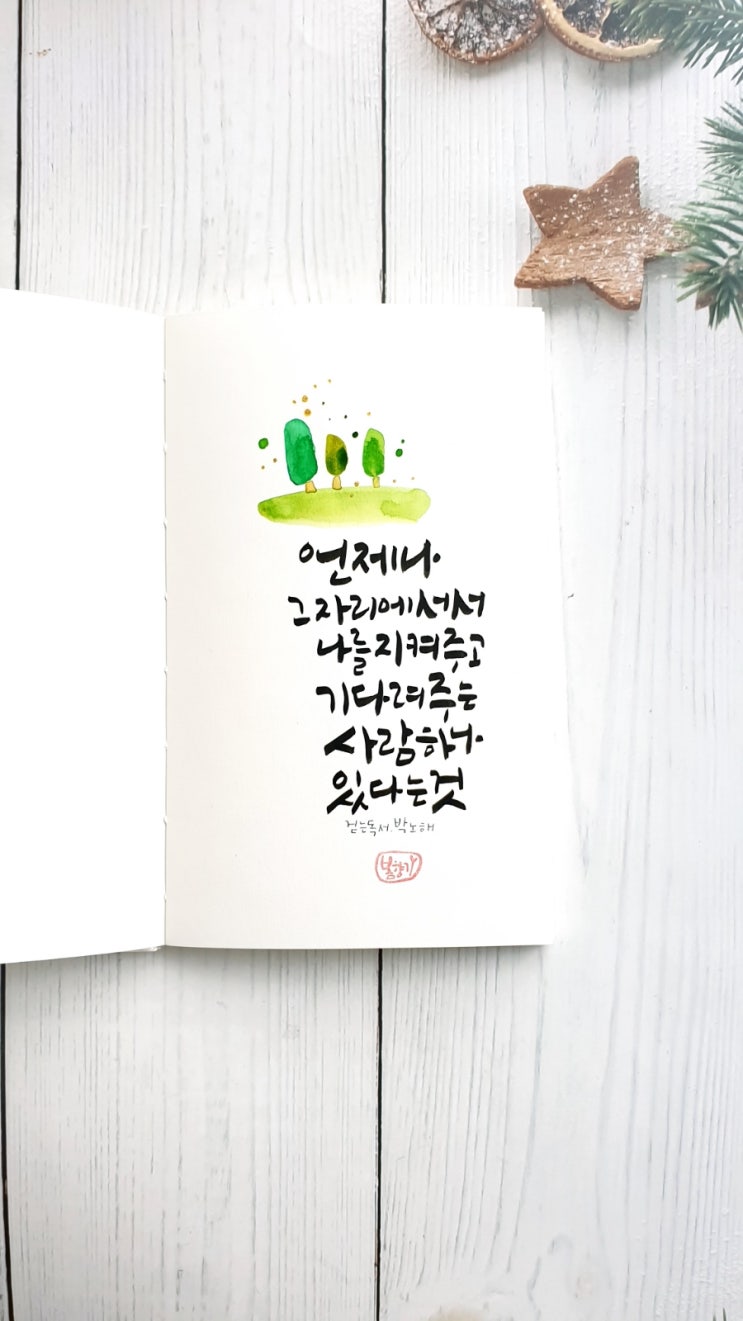 언제나
그 자리에 서서
나를 지켜주고
기다려주는
사람 하나
있다는 것
걷는 독서. 박노해
봄향기